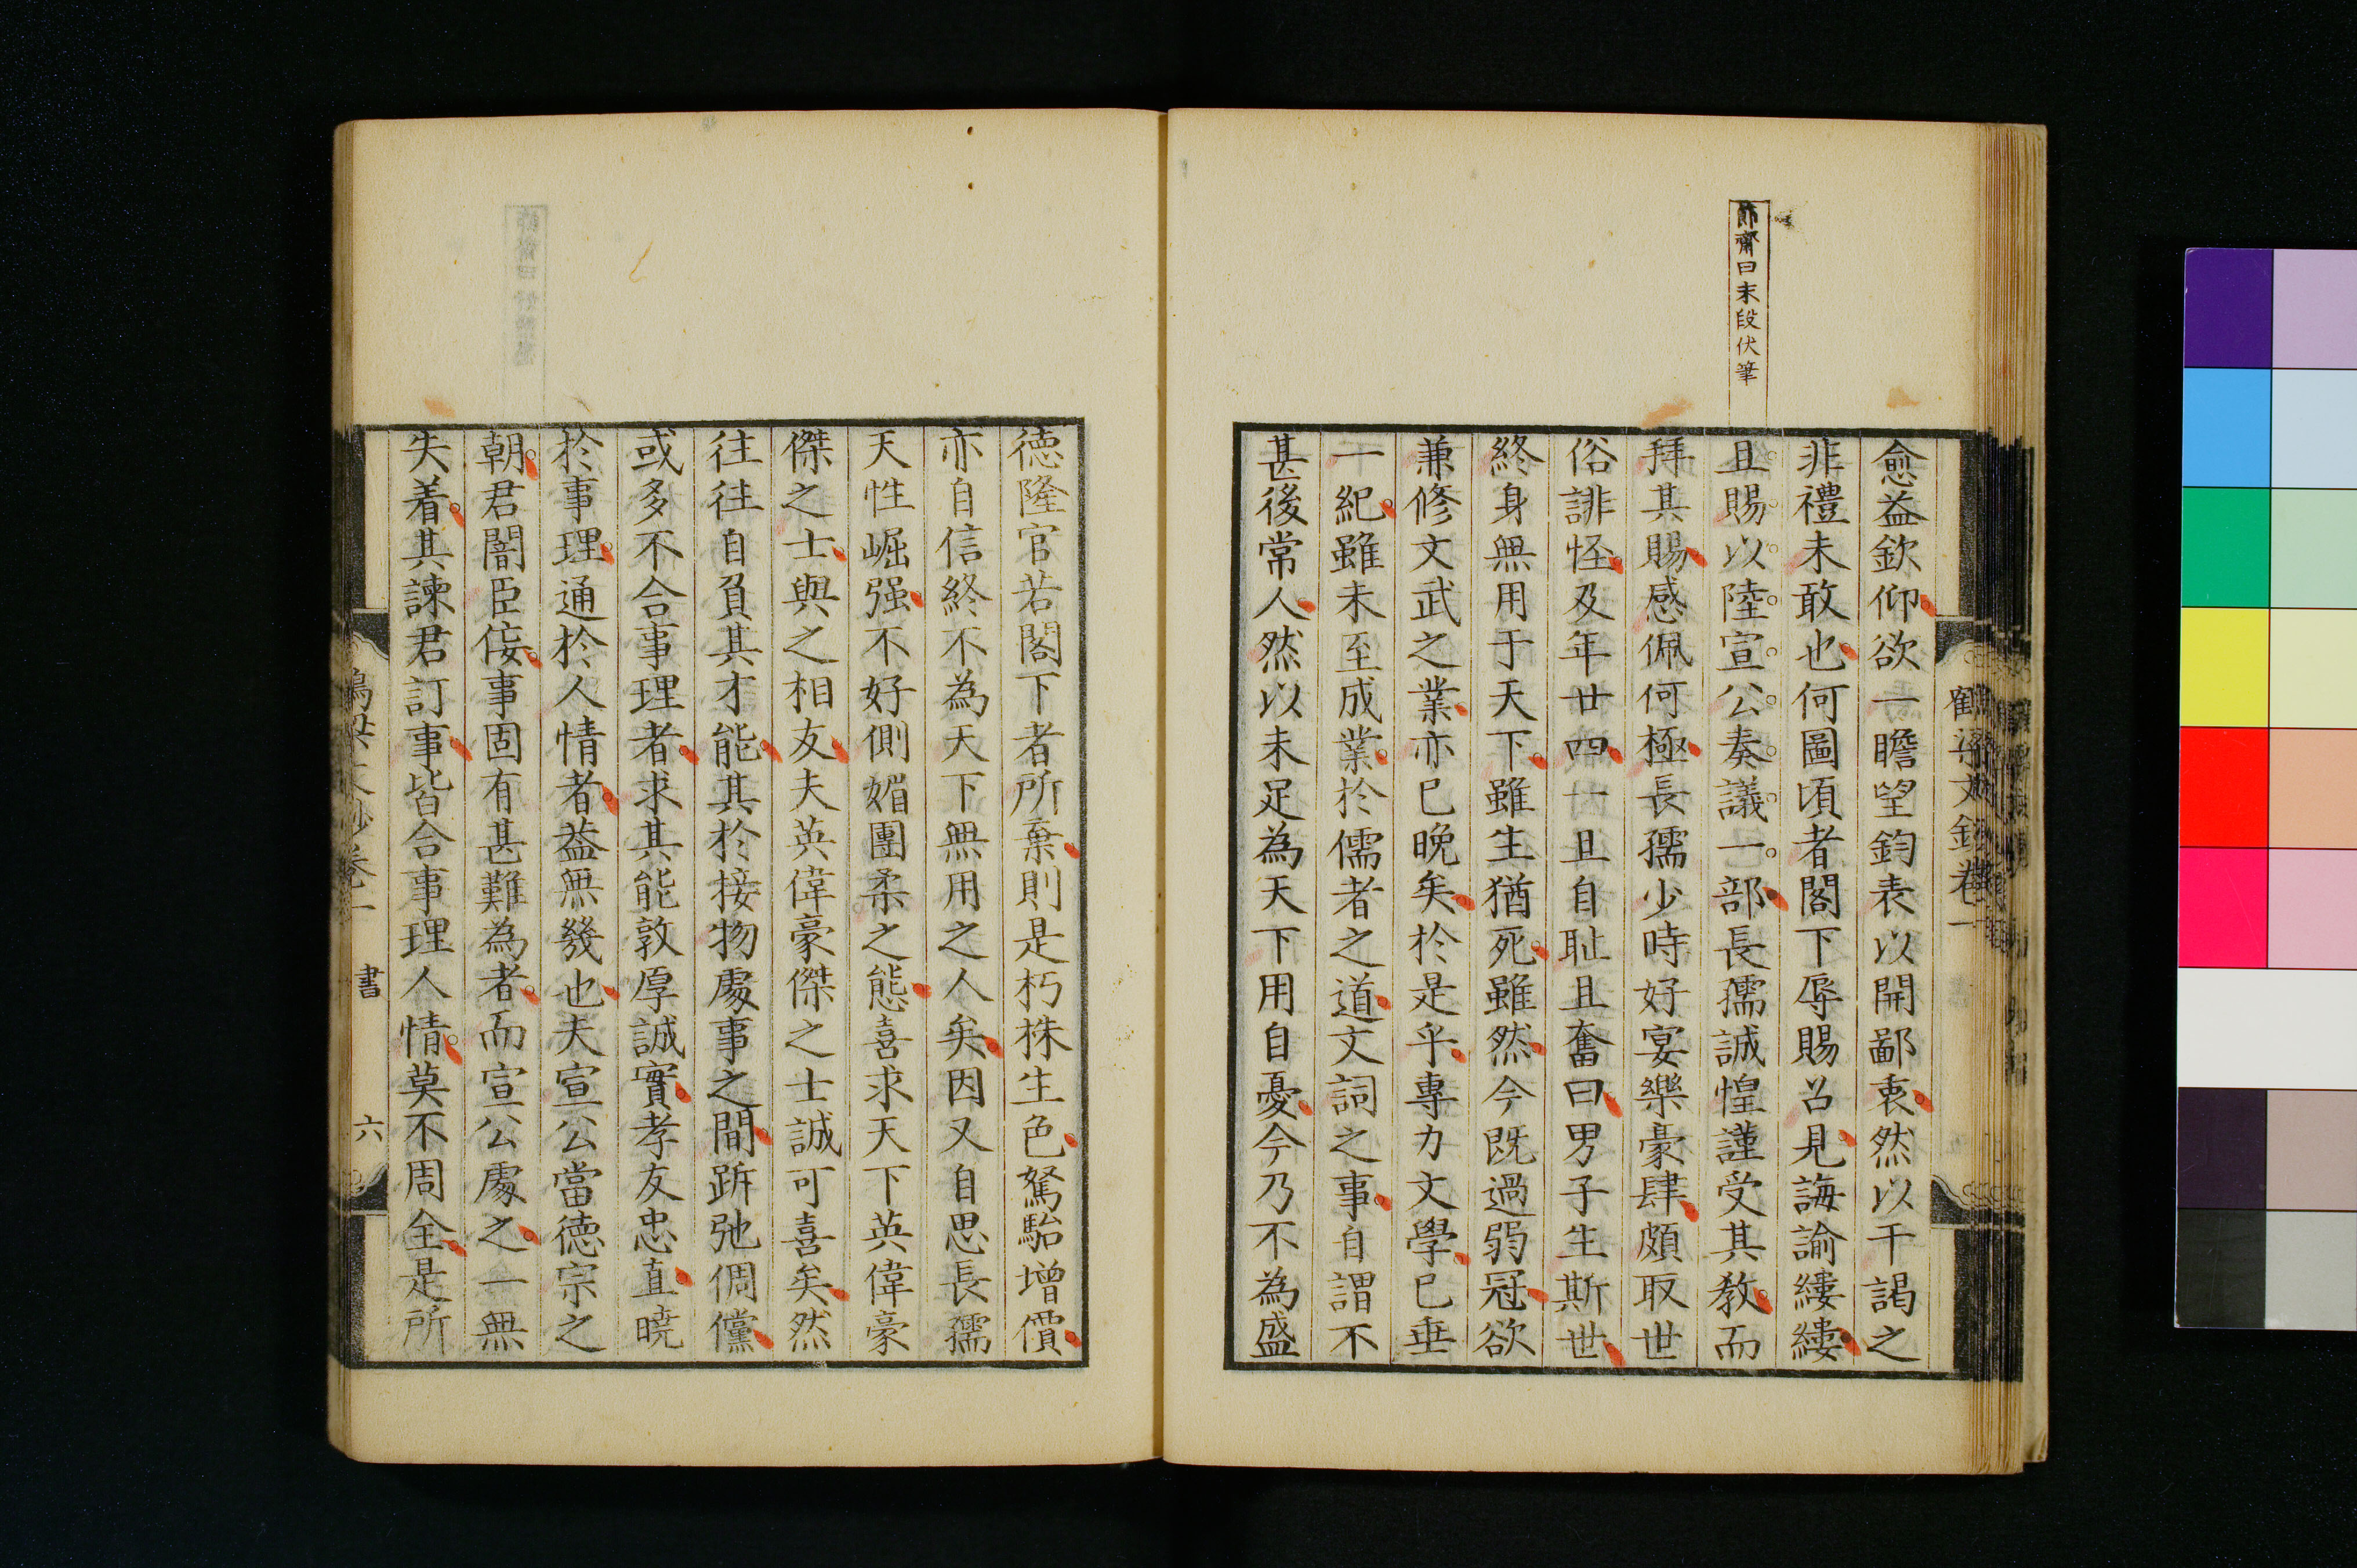 節齋曰末段伏筆
愈益欽仰欲一瞻望鈞表以開鄙衷然以干謁之
非禮未敢也何圖頃者閣下辱賜召見誨諭縷縷
且賜以陸宣公奏議一部長孺誠惶謹受其教而
拜其賜感佩何極長孺少時好宴樂豪肆頗取世
俗誹怪及年廿四一旦自耻且奮曰男子生斯世
終身無用于天下雖生猶死雖然今既過弱冠欲
兼修文武之業亦已晚矣於是乎專力文學已垂
一紀雖未至成業於儒者之道文詞之事自謂不
甚後常人然以未足為天下用自憂今乃不為盛
德隆官若閣下者所棄則是朽株生色駑駘增價
亦自信終不為天下無用之人矣因又自思長孺
天性崛强不好側媚團柔之態喜求天下英偉豪
傑之士與之相友夫英偉豪傑之士誠可喜矣然
往往自負其才能其於接物處事之間跅弛倜儻
或多不合事理者求其能敦厚誠實孝友忠直曉
於事理通於人情者益無幾也夫宣公當德宗之
朝君闇臣侫事固有甚難為者而宣公處之一無
失着其諫君訂事皆合事理人情莫不周全是所
鶴梁文鈔卷一
書
六